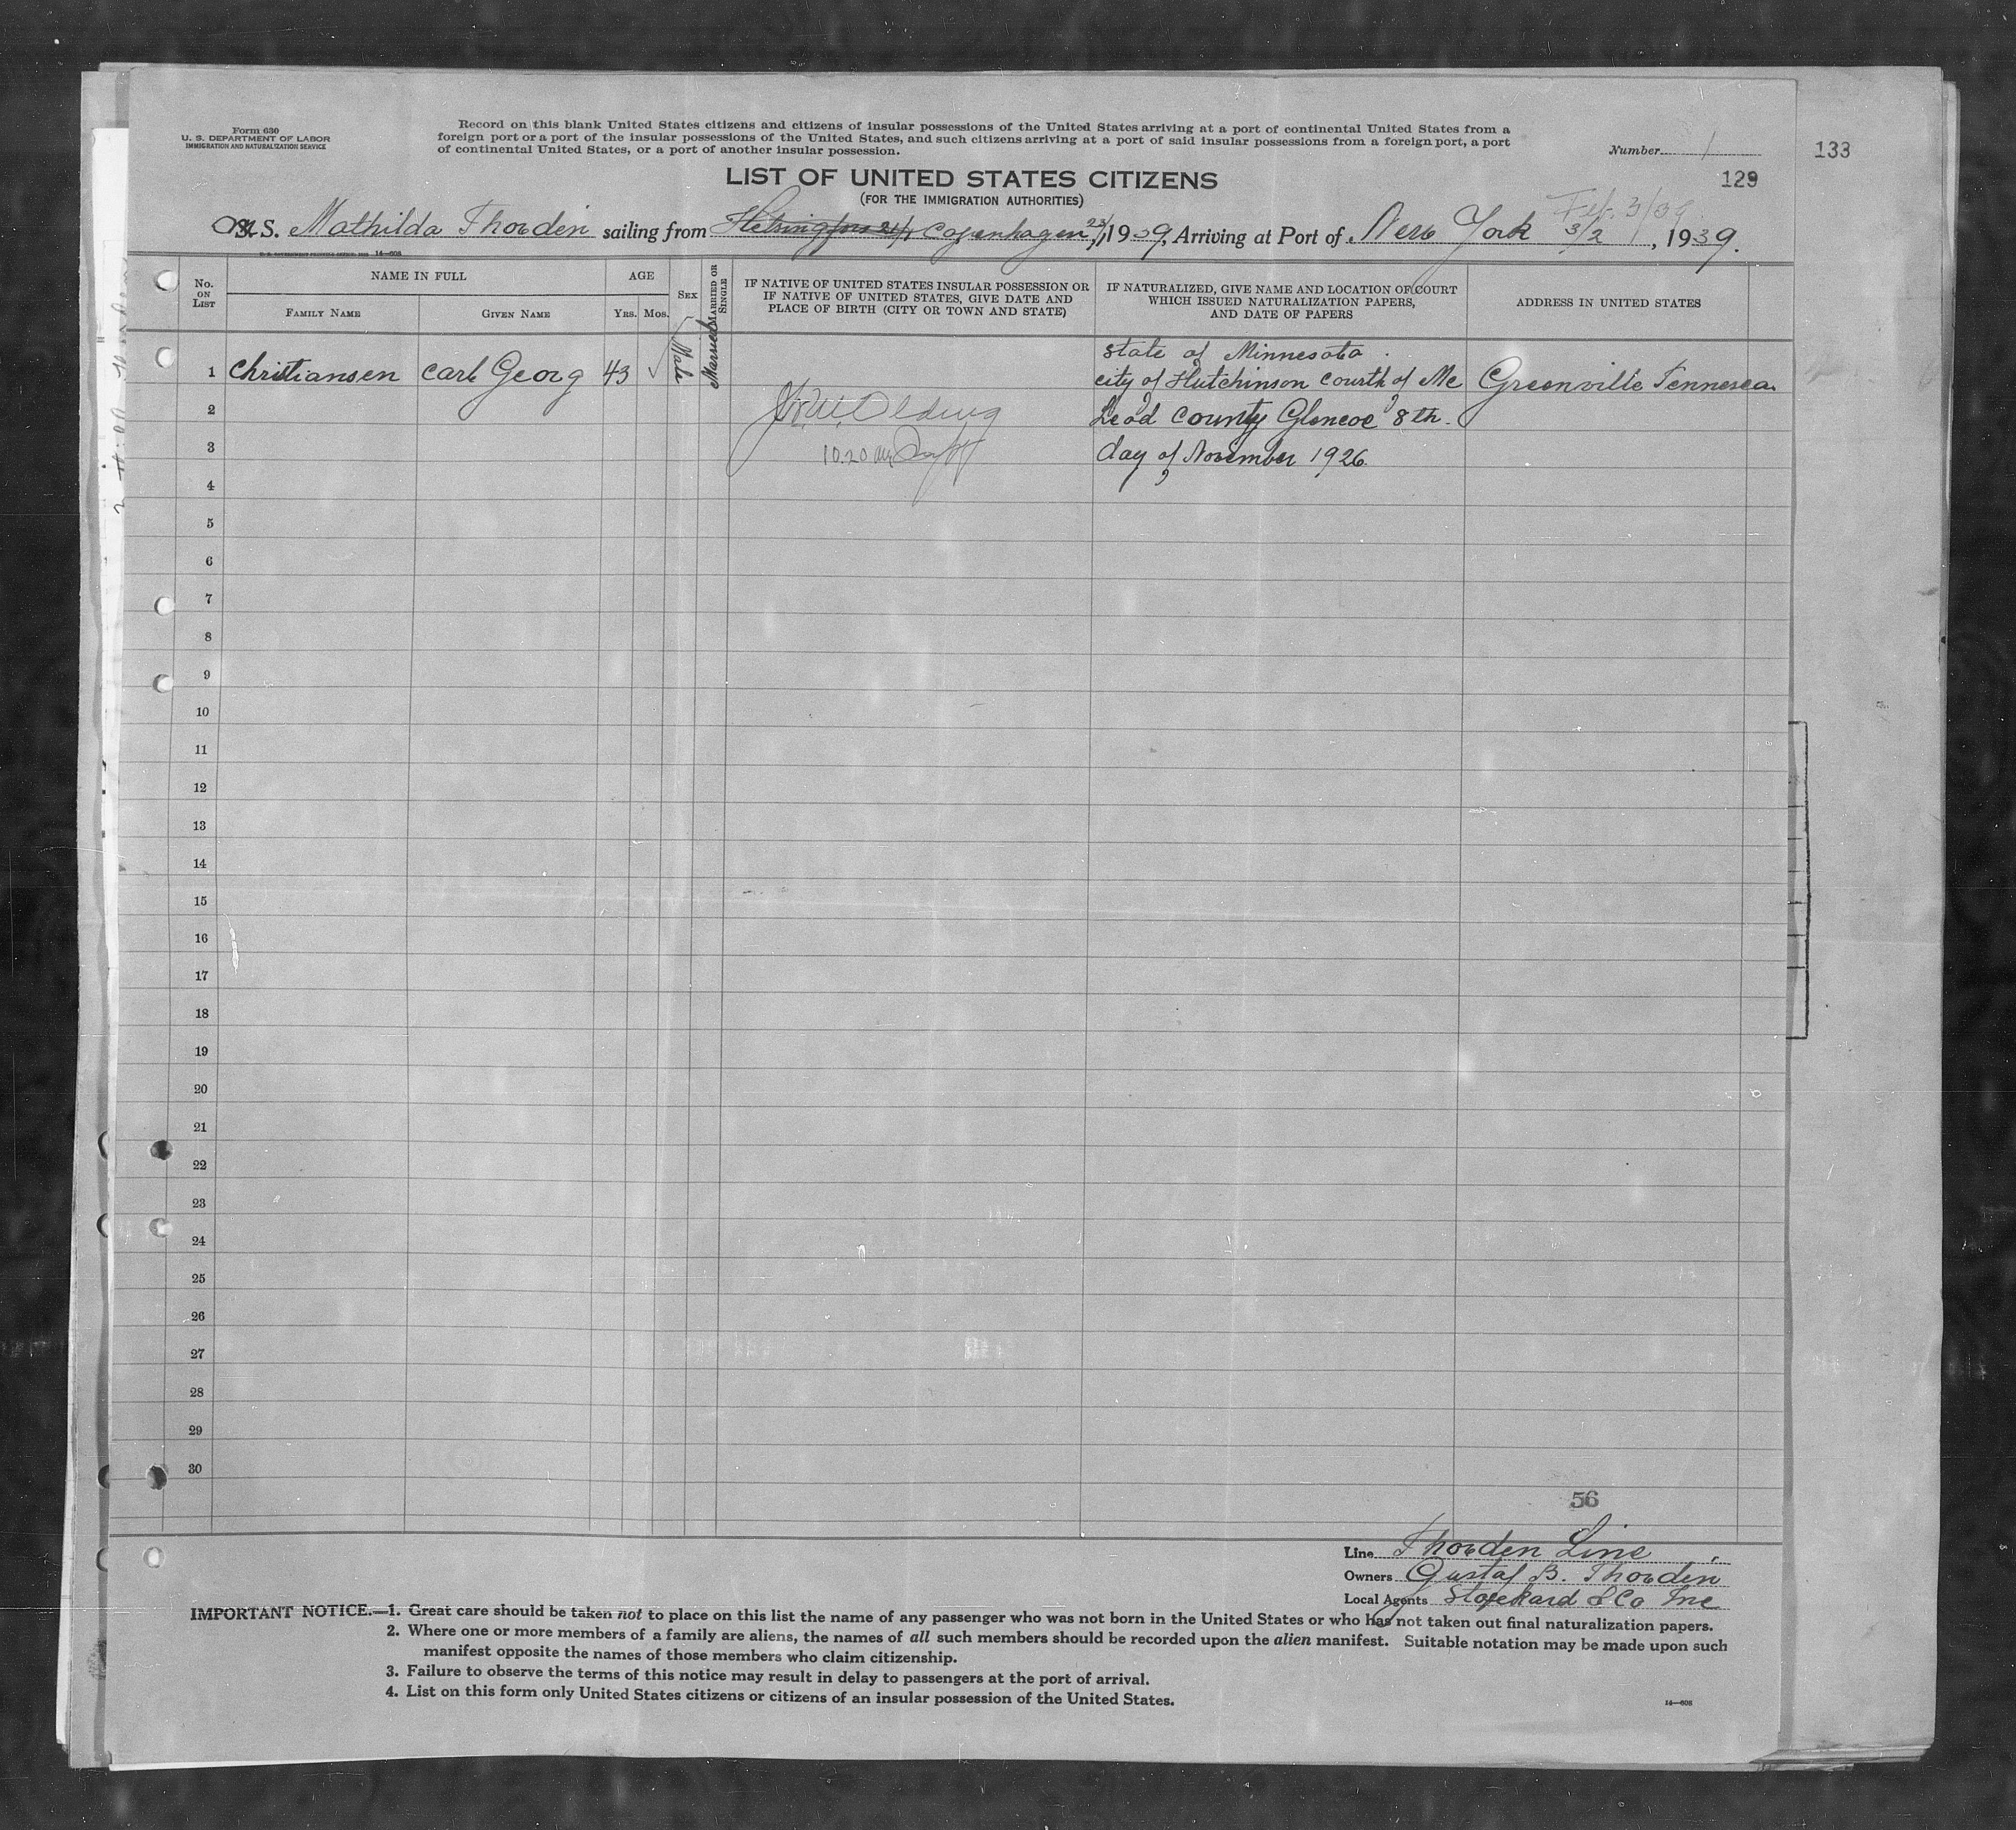 Form 630
U. S. DEPARTMENT OF LABOR
IMMIGRATION AND NATURALIZATION SERVICE
Record on this blank United States citizens and citizens of insular possessions of the United States arriving at a port of continental United States from a
foreign port or a port of the insular possessions of the United States, and such citizens arriving at a port of said insular possessions from a foreign port, a port
of continental United States, or a port of another insular possession.
Number 1
133
129
LIST OF UNITED STATES CITIZENS
(FOR THE IMMIGRATION AUTHORITIES)
Feb. 3/39
S. Mathilda Thordén sailing from Helsingfors 21/1 Copenhagen 23/1, 1939, Arriving at Port of New York 3/2, 1939.
14—608
No. ON LIST
NAME IN FULL
FAMILY NAME
GIVEN NAME
AGE
YRS. MOS.
SEX
MARRIED OR SINGLE
IF NATIVE OF UNITED STATES INSULAR POSSESSION OR
IF NATIVE OF UNITED STATES, GIVE DATE AND
PLACE OF BIRTH (CITY OR TOWN AND STATE)
IF NATURALIZED, GIVE NAME AND LOCATION OF COURT
WHICH ISSUED NATURALIZATION PAPERS,
AND DATE OF PAPERS
ADDRESS IN UNITED STATES
state of Minnesota.
1 Christiansen Carl Georg 43 ✓ Male Married city of Hutchinson Courth of Mc Greenville Tennesea.
2 Leod County Glencoe 8th.
3 10.20 day of November 1926.
4
5
6
7
8
9
10
11
12
13
14
15
16
17
18
19
20
21
22
23
24
25
26
27
28
29
30
56
Line Thordén Line
Owners Gustaf B. Thordén
Local Agents Stockard & Co Inc
IMPORTANT NOTICE.—1. Great care should be taken not to place on this list the name of any passenger who was not born in the United States or who has not taken out final naturalization papers.
2. Where one or more members of a family are aliens, the names of all such members should be recorded upon the alien manifest. Suitable notation may be made upon such
manifest opposite the names of those members who claim citizenship.
3. Failure to observe the terms of this notice may result in delay to passengers at the port of arrival.
4. List on this form only United States citizens or citizens of an insular possession of the United States.
14—608